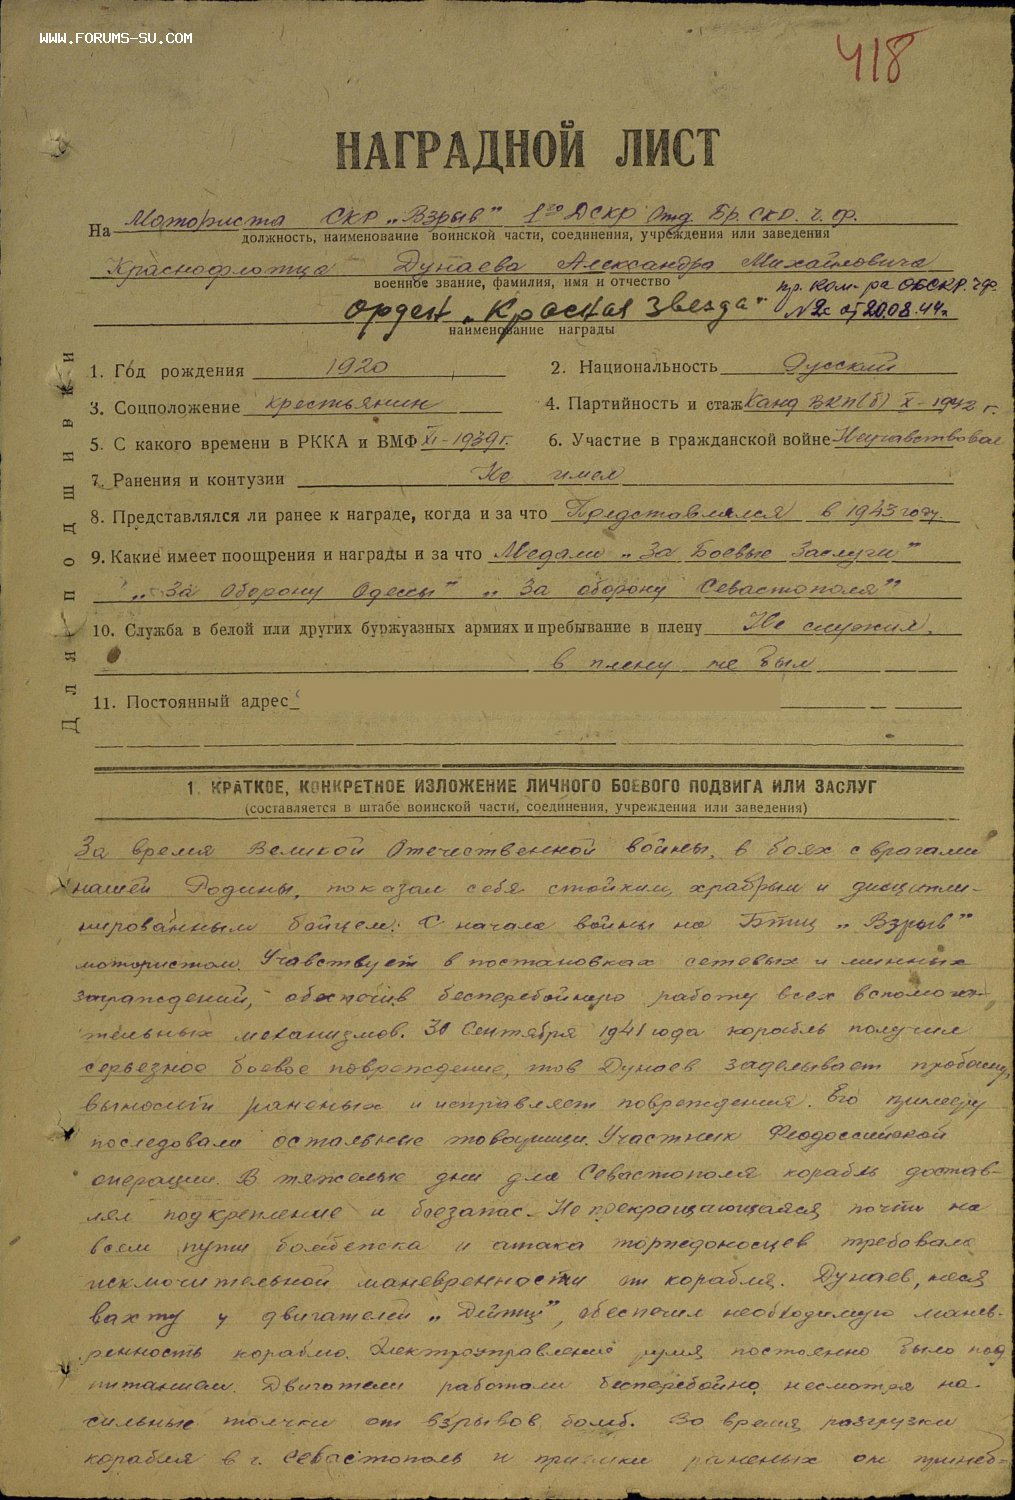 WWW.FORUMS-SU.COM
418
НАГРАДНОЙ ЛИСТ
На Моториста СКР „Взрыв" 1го ДСКР Отд. Бр. СКР. Ч.Ф.
должность, наименование воинской части, соединения, учреждения или заведения
Краснофлотца Дунаева Александра Михайловича
военное звание, фамилия, имя и отчество
пр. Ком-ра ОБСКР. ЧФ.
орден „Красная Звезда" № 2с от 20.08.44г.
наименование награды
1. Год рождения 1920
2. Национальность Русский
3. Соцположение крестьянин
4. Партийность и стаж Канд ВКП(б) X-1942 г.
5. С какого времени в РККА и ВМФ XI-1939 г.
6. Участие в гражданской войне Неучавствовал
7. Ранения и контузии Не имел
8. Представлялся ли ранее к награде, когда и за что Представлялся в 1943 году
9. Какие имеет поощрения и награды и за что Медали „За Боевые Заслуги"
„За Оборону Одессы" „За оборону Севастополя"
10. Служба в белой или других буржуазных армиях и пребывание в плену Не служил,
в плену не был
11. Постоянный адрес
Для подшивки
1. КРАТКОЕ, КОНКРЕТНОЕ ИЗЛОЖЕНИЕ ЛИЧНОГО БОЕВОГО ПОДВИГА ИЛИ ЗАСЛУГ
(составляется в штабе воинской части, соединения, учреждения или заведения)
За время Великой Отечественной войны, в боях с врагами
нашей Родины, показал себя стойким, храбрым и дисципли-
нированным бойцем. С начала войны на БТЩ „Взрыв"
мотористом. Учавствует в постановках сетевых и минных
заграждений, обеспечив бесперебойную работу всех вспомога-
тельных механизмов. 30 Сентября 1941 года корабль получил
серьезное боевое повреждение, тов Дунаев заделывает пробоину,
выносит раненых и исправляет повреждения. Его примеру
последовали остальные товарищи. Участник Феодоссийской
операции. В тяжелые дни для Севастополя корабль достав-
лял подкрепление и боезапас. Не прекращающаяся почти на
всем пути бомбежка и атака торпедоносцев требовала
исключительной маневренности от корабля. Дунаев, неся
вахту у двигателей „Дейтц", обеспечил необходимую манев-
ренность корабля. Электроуправление руля постоянно было под
питанием. Двигатели работали бесперебойно, несмотря на
сильные толчки от взрывов бомб. Во время разгрузки
корабля в г. Севастополь и приемки раненых он